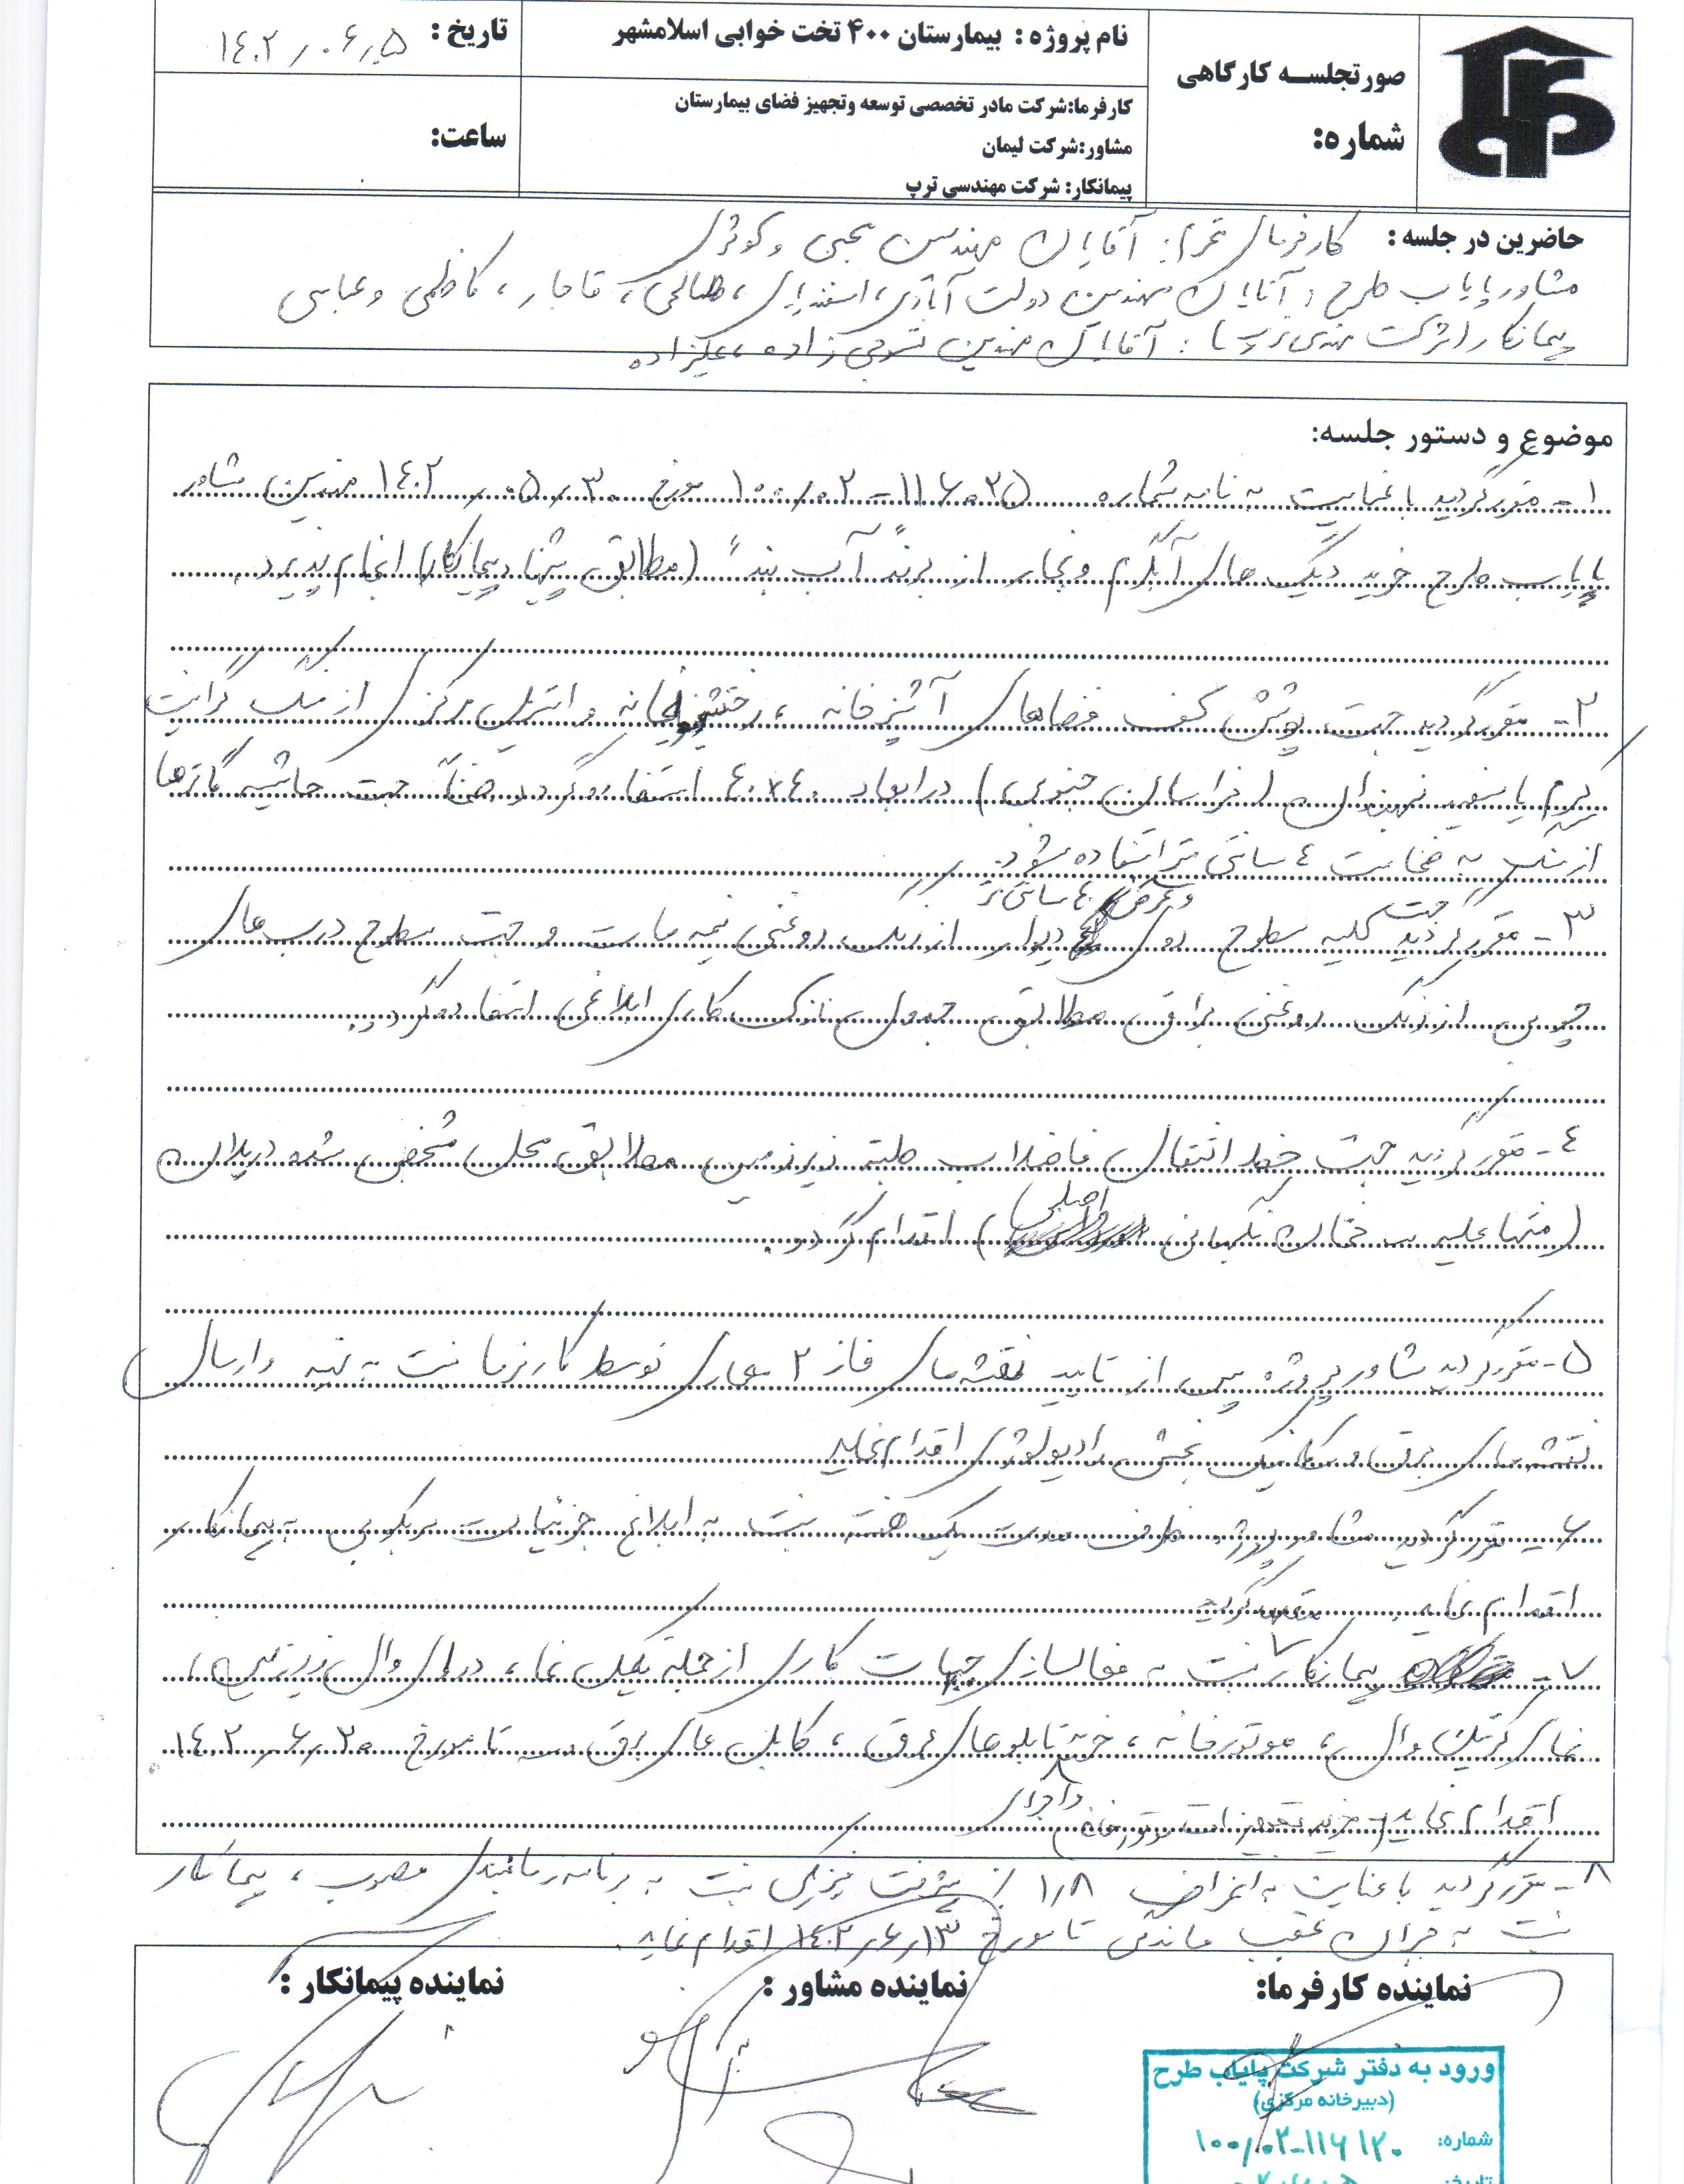 صورتجلسه کارگاهی
شماره:
نام پروژه : بیمارستان ۴۰۰ تخت خوابی اسلامشهر
کارفرما:شرکت مادر تخصصی توسعه وتجهیز فضای بیمارستان
مشاور:شرکت لیمان
پیمانکار: شرکت مهندسی ترپ
تاریخ : ۱۴۰۲/۰۶/۵
ساعت:
حاضرین در جلسه : کارفرمای محترم: آقایان مهندسین یحیی و کوثری
مشاور پایاب طرح : آقایان مهندسین دولت آبادی، اسفندیاری، صالحی، قاجار، کاظمی و عباسی
پیمانکار (شرکت مهندسی ترپ) : آقایان مهندسین زاده، علیزاده
موضوع و دستور جلسه:
۱- مقرر گردید با عنایت به نامه شماره ۱۱۶۰۳۵-۱۰۰/۰۲ مورخ ۱۴۰۲/۰۵/۳۰ مهندسین مشاور
پایاب طرح خرید دیگ های آبگرم و بخار از برند "آب بند" (مطابق پیشنهاد پیمانکار) انجام پذیرد.
۲- مقرر گردید جهت پوشش کف فضاهای آشپزخانه، رختشویخانه و استریل مرکزی از سنگ گرانیت
کرم یا سفید نهبندان (خراسان جنوبی) در ابعاد ۴۰×۴۰ استفاده گردد ضمناً جهت حاشیه گاترها
از سنگ به ضخامت ۴ سانتی متر استفاده شود.
و عرض ۴۰ سانتی متر
۳- مقرر گردید جهت کلیه سطوح روی دیوار از رنگ روغنی نیمه مات و جهت سطوح درب های
چوبی از رنگ روغنی براق مطابق جدول نازک کاری ابلاغی استفاده گردد.
۴- مقرر گردید جهت خط انتقال فاضلاب طبقه زیرزمین مطابق محل مشخص شده در پلان
(منتها علیه ساختمان نگهبانی اصلی) اقدام گردد.
۵- مقرر گردید مشاور پروژه پس از تایید نقشه های فاز ۲ معماری توسط کارفرما نسبت به تهیه و ارسال
نقشه های برق و مکانیک بخش رادیولوژی اقدام نماید
۶- مقرر گردید مشاور پروژه ظرف مدت یک هفته نسبت به ابلاغ جزئیات سربکوبی به پیمانکار
اقدام نماید
۷- مقرر گردید پیمانکار نسبت به فعالسازی جبهات کاری از جمله تکمیل نما، درای وال زیرزمین،
نمای کرتین وال، موتورخانه، خرید تابلوهای برق، کابل های برق و ... تا مورخ ۱۴۰۲/۶/۲۰
اقدام نماید (خرید و اجرای تجهیزات موتورخانه)
۸- مقرر گردید با عنایت به انحراف ۱/۸ ٪ پیشرفت فیزیکی نسبت به برنامه زمانبندی مصوب، پیمانکار
نسبت به جبران عقب ماندگی تا مورخ ۱۴۰۲/۶/۱۳ اقدام نماید.
نماینده کارفرما:
نماینده مشاور :
نماینده پیمانکار :
ورود به دفتر شرکت پایاب طرح
(دبیرخانه مرکزی)
شماره: ۱۰۰/۰۲-۱۱۶۱۲۰
تاریخ: